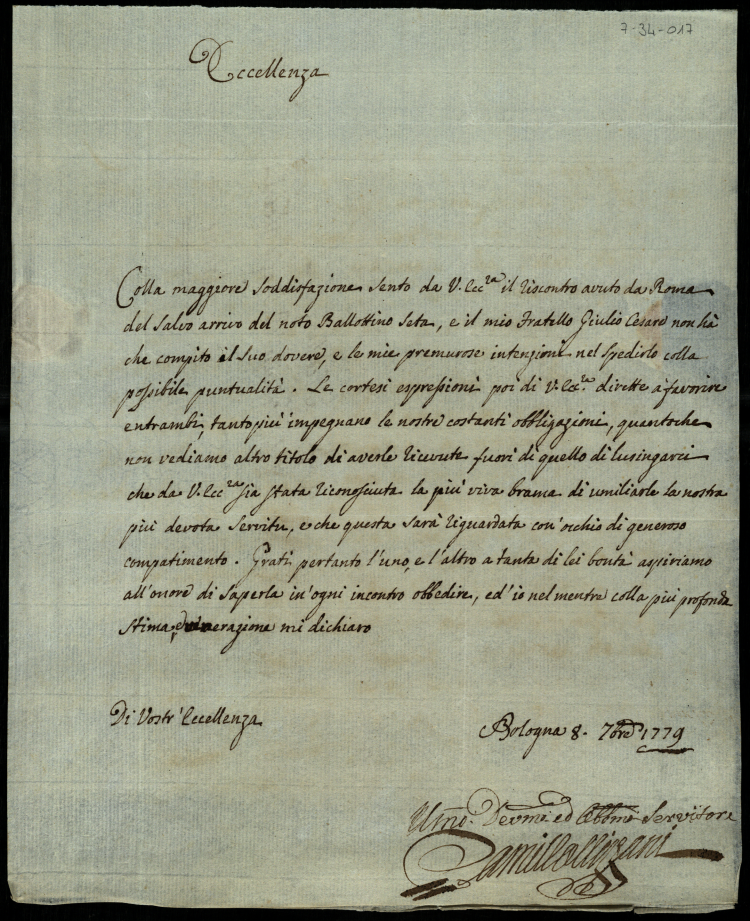 7-34-017
Eccellenza
Colla maggiore soddisfazione sento da V. Ecc.za il riscontro avuto da Roma
del salvo arrivo del noto Ballottino Seta, e il mio Fratello Giulio Cesare non hà
che compito il suo dovere, e le mie premurose intenzioni nel spedirlo colla
possibile puntualità. Le cortesi espressioni poi di V. Ecc.za dirette a favorire
entrambi, tanto più impegnano le nostre costanti obbligazioni, quantoche
non vediamo altro titolo di averle ricevute fuori di quello di lusingarci
che da V. Ecc.za sia stata riconosciuta la più viva brama di umiliarle la nostra
più devota servitù, e che questa sarà riguardata con'occhio di generoso
compatimento. Grati pertanto l'uno, e l'altro a tanta di lei bontà aspiriamo
all'onore di saperla in'ogni incontro obbedire, ed'io nel mentre colla più profonda
stima, e venerazione mi dichiaro
Di Vostr'Eccellenza
Bologna 8. 7bre 1779
Umo. Devmo ed Obbmo Servitore